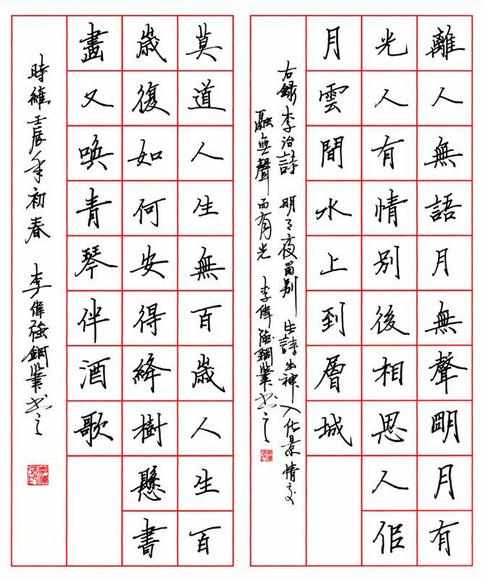 離人無語月無聲明月有
光人有情別後相思人佀
月雲間水上到層城
右録李冶詩 明月夜留別 此詩出神入化景情交
融無聲而有光 李偉強鋼筆书之
莫道人生無百歲人生百
歲復如何安得絳樹懸書
畫又喚青琴伴酒歌
時維壬辰年初春 李偉強鋼筆书之